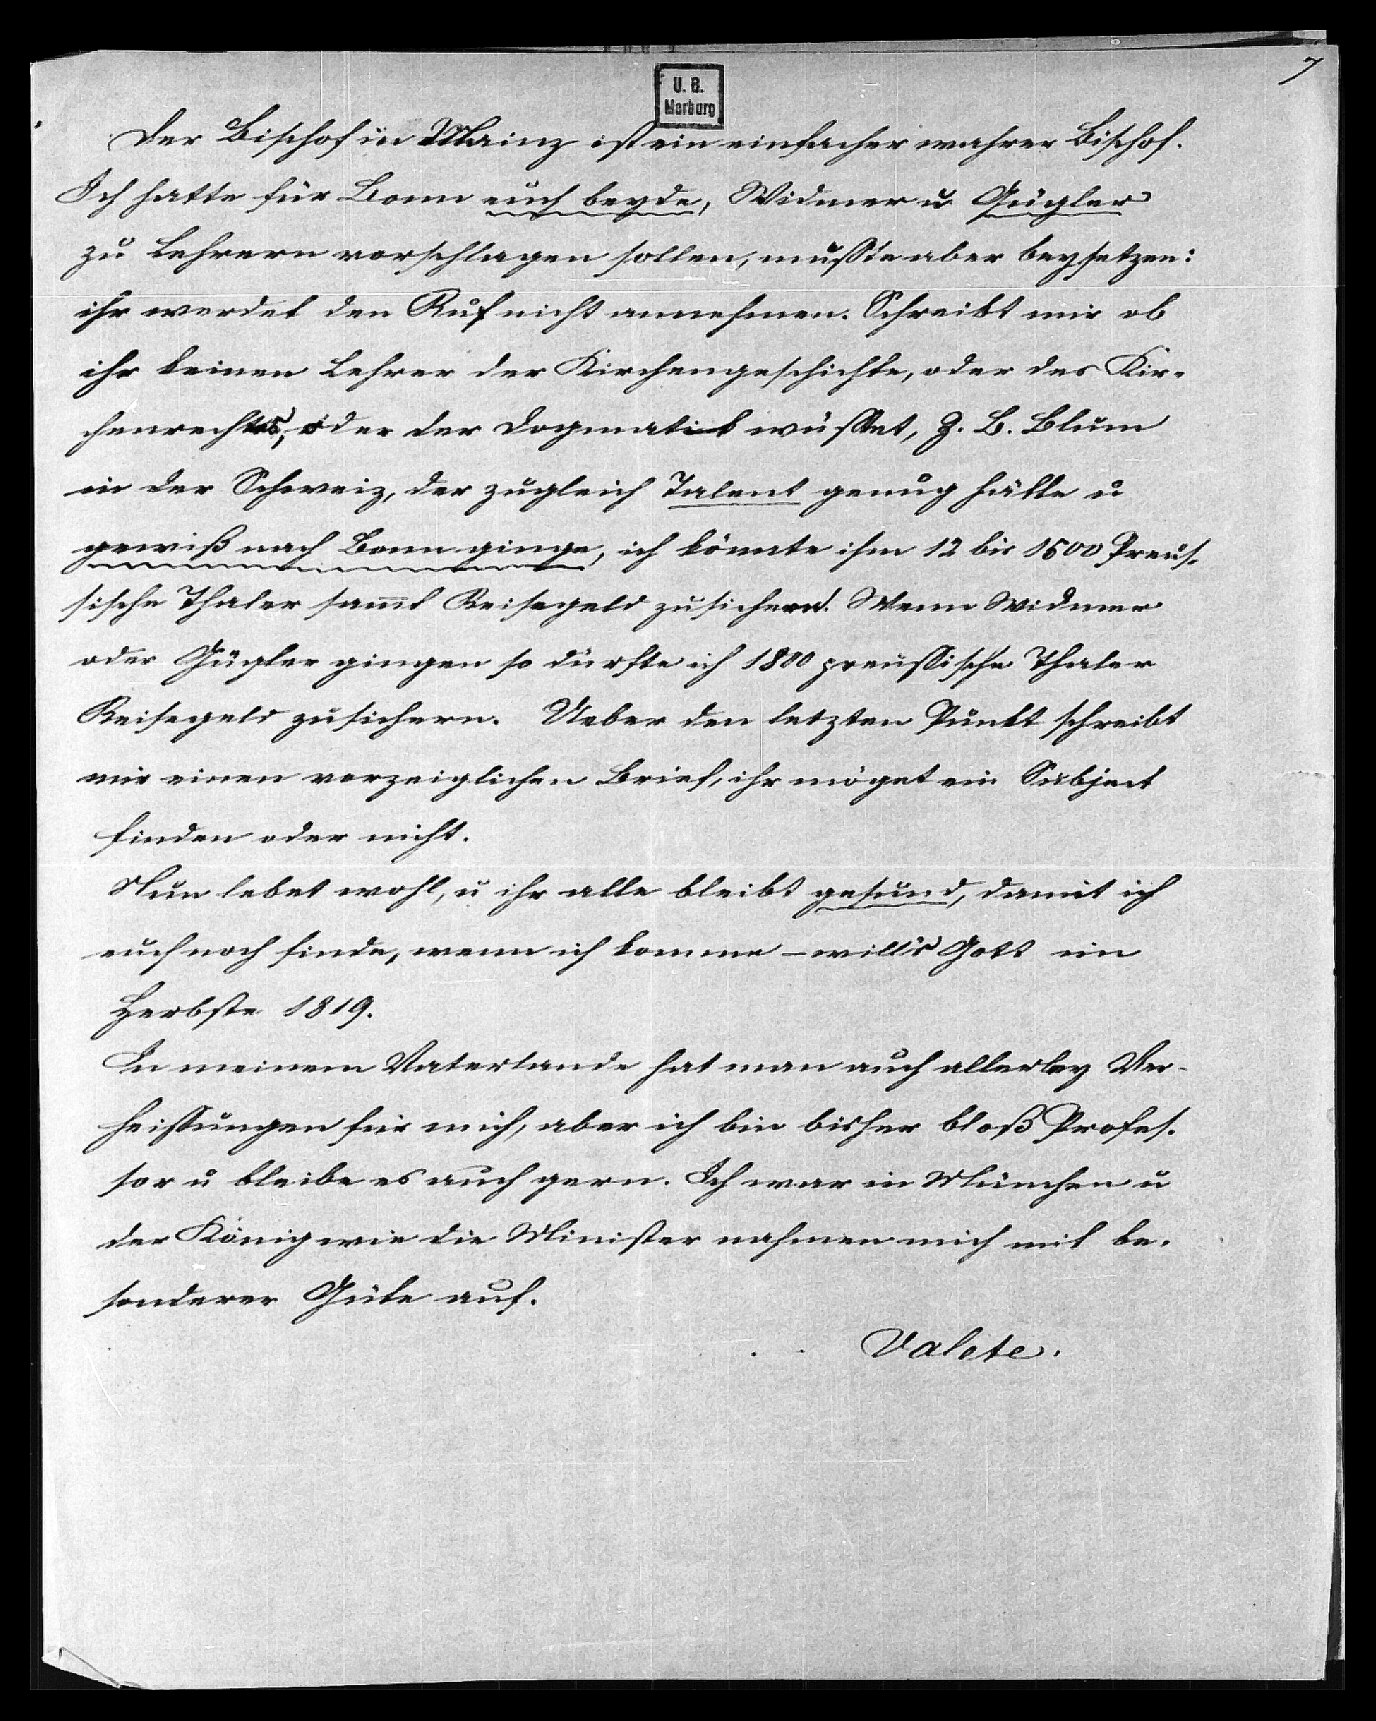 7
U. B.
Marburg
Der Bischof in Mainz ist ein einfacher wahrer Bischof.
Ich hatte für Bonn euch beyde, Widmer u Gügler
zu Lehrern vorschlagen sollen, mußte aber beysetzen:
ihr werdet den Ruf nicht annehmen. Schreibt mir ob
ihr keinen Lehrer der Kirchengeschichte, oder des Kir-
chenrechts, oder der Dogmatik wüsset, Z. B. Blum
in der Schweiz, der zugleich Talent genug hätte u
gewiß nach Bonn ginge, ich könnte ihm 12 bis 1500 Preus-
sische Thaler sammt Reisegeld zusichern. Wenn Widmer
oder Gügler gingen so dürfte ich 1800 preussische Thaler
Reisegeld zusichern. Ueber den letzten Punkt schreibt
mir einen vorzeiglichen Brief, ihr möget ein Subject
finden oder nicht.
Nun lebet wohl, u ihr alle bleibt gesund, damit ich
euch noch finde, wenn ich komme – will's Gott im
Herbste 1819.
In meinem Vaterlande hat man auch allerley Ver-
heissungen für mich, aber ich bin bisher bloß Profes-
sor u bleibe es auch gern. Ich war in München u
der König wie die Minister nahmen mich mit be-
sonderer Güte auf.
Valete.